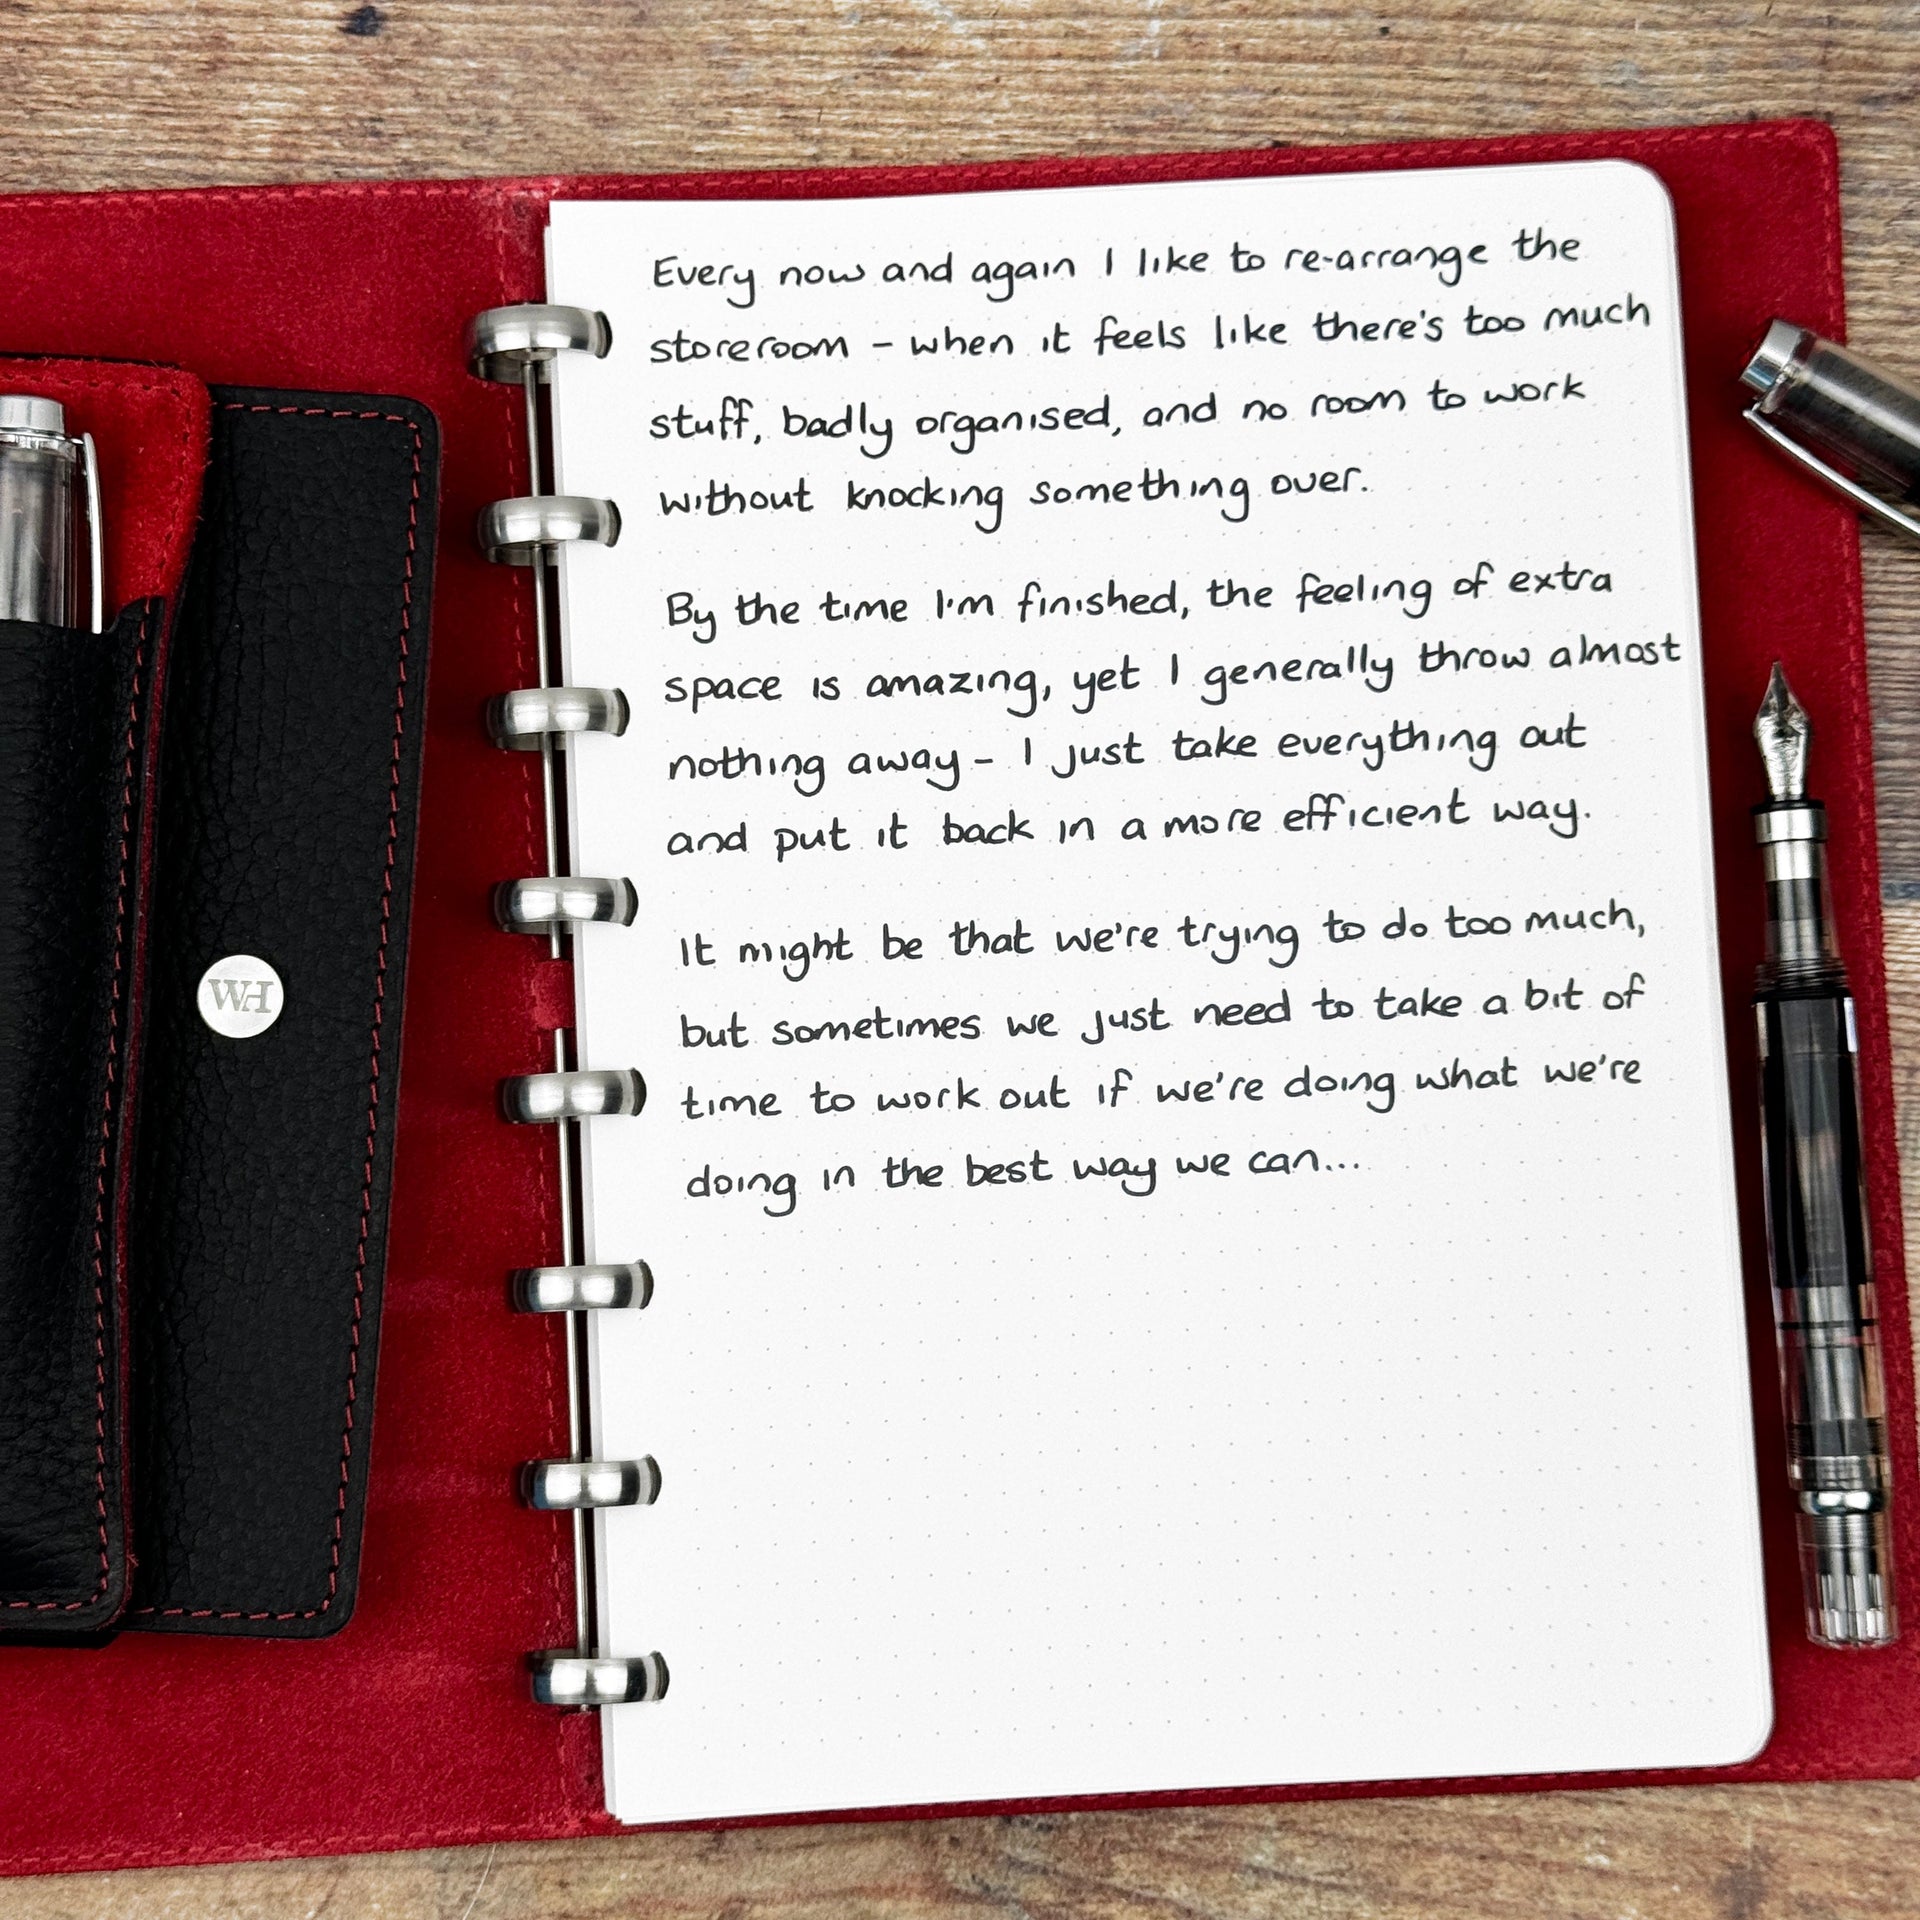 Every now and again I like to re-arrange the
storeroom - when it feels like there's too much
stuff, badly organised, and no room to work
without knocking something over.
By the time I'm finished, the feeling of extra
space is amazing, yet I generally throw almost
nothing away - I just take everything out
and put it back in a more efficient way.
It might be that we're trying to do too much,
but sometimes we just need to take a bit of
time to work out if we're doing what we're
doing in the best way we can...
WH